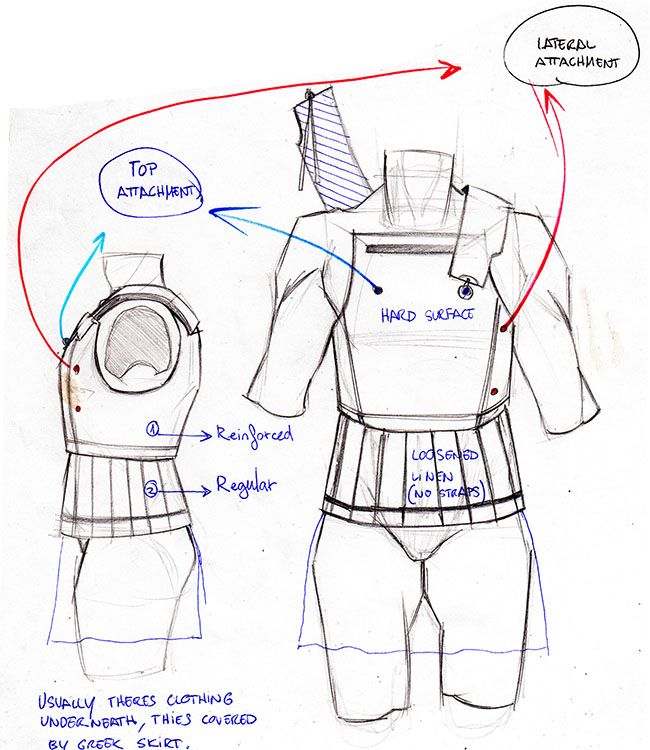 LATERAL
ATTACHMENT
TOP
ATTACHMENT
HARD SURFACE
1 Reinforced
LOOSENED
LINEN
(NO STRAPS)
2 Regular
USUALLY THERES CLOTHING
UNDERNEATH, THIES COVERED
BY GREEK SKIRT.